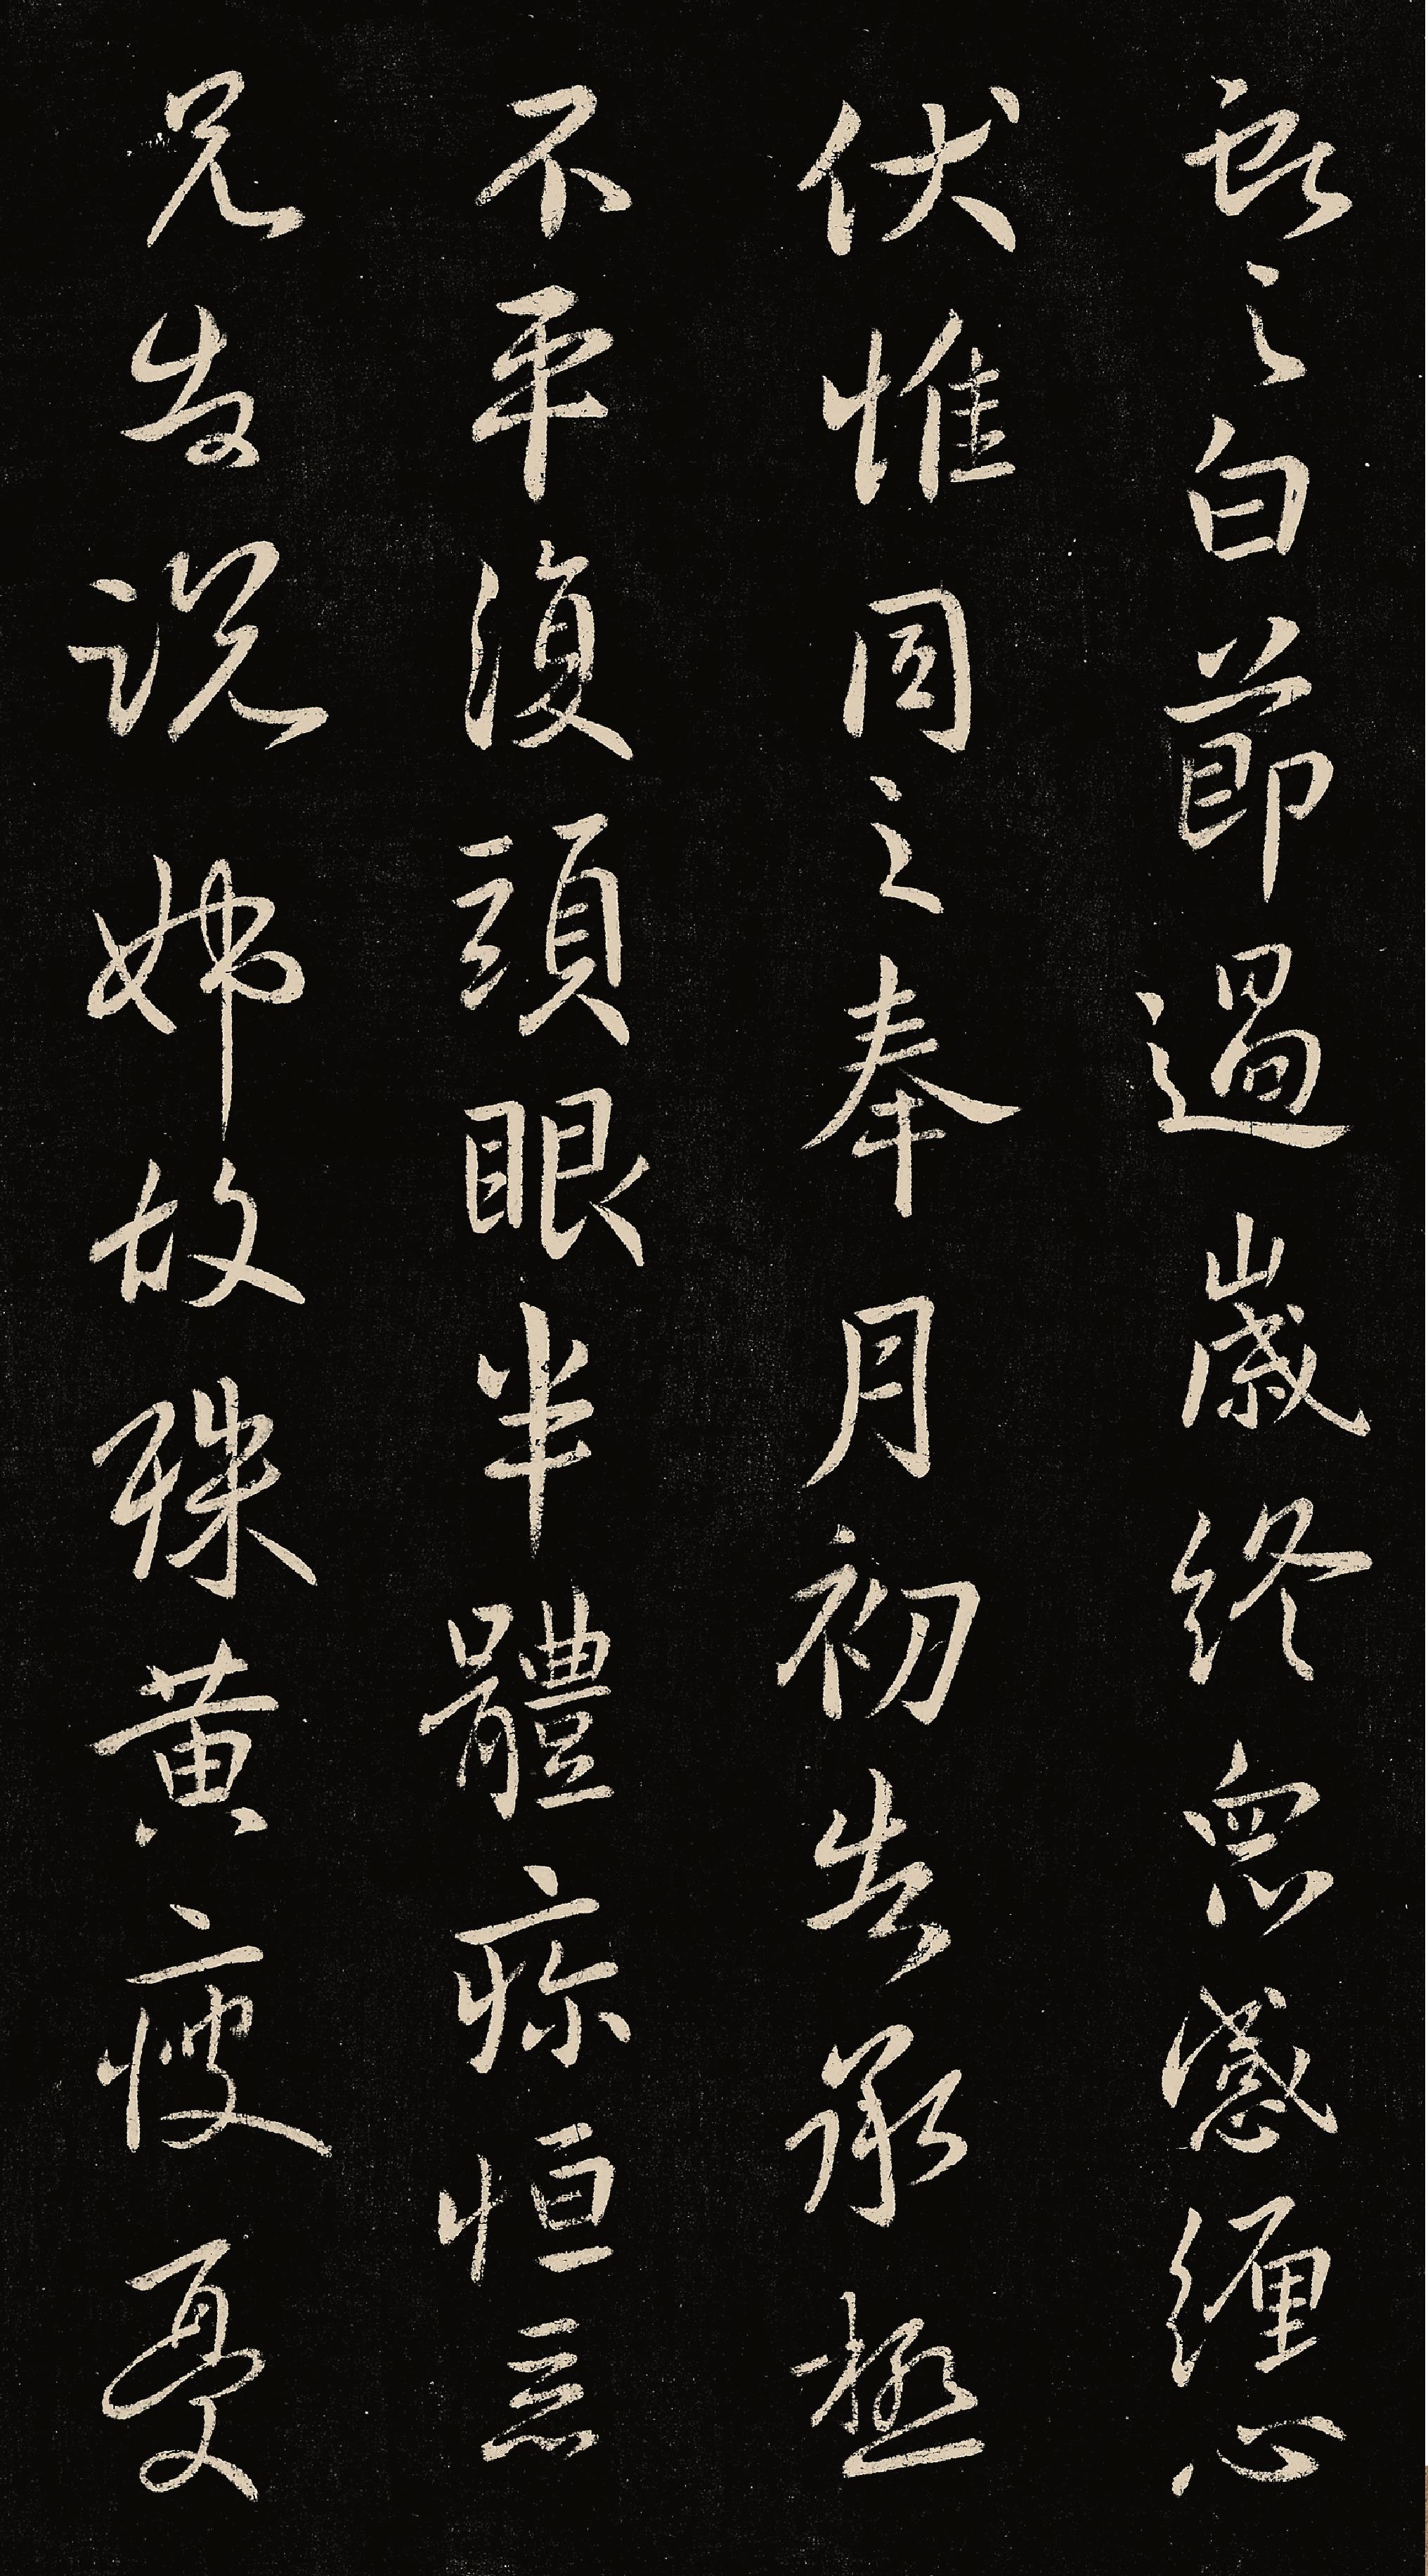 獻之白節過歲終衆感纏心
伏惟同之奉月初告承極
不平復頭眼半體疹恒惡
兄告說姊故殊黃瘦憂